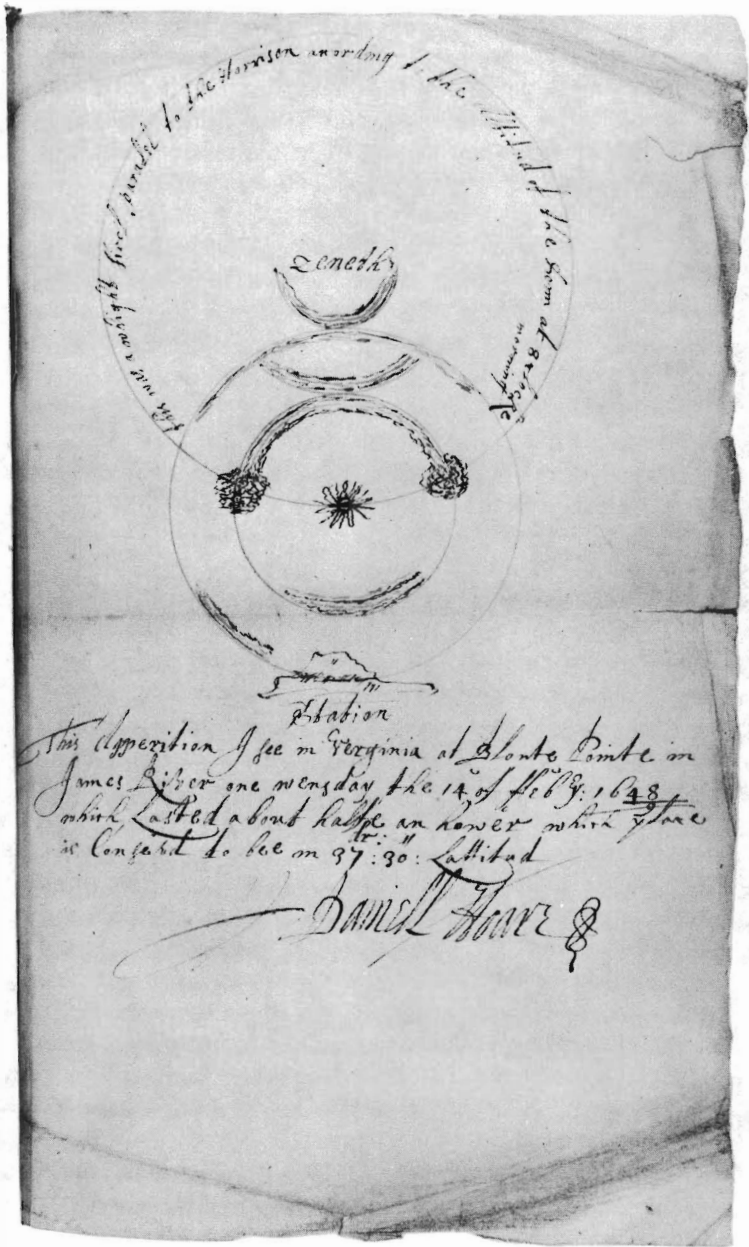 this was a whight sircel paralel to the Horrison acording to the Altitud of the Sonn at 8 a clock
in morning
Zeneth
Station
This Apperition I see in Verginia at Blonte Pointe in
James River one wensday the 14º of ffebʳy: 1648/9
which Lasted about halfe an hower which place
is Conserd to bee in 37 dr: 30'': Lattitud
Daniell Hoare